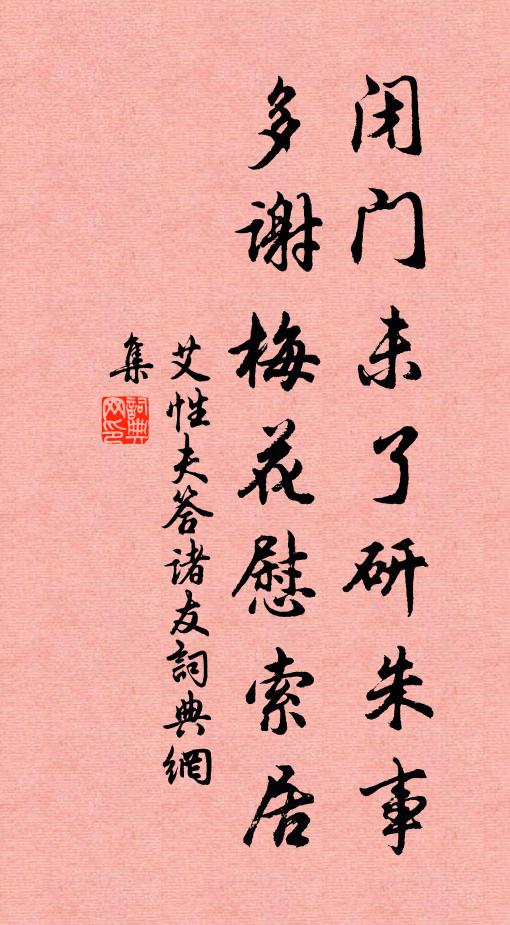 闭门未了研朱事
多谢梅花慰索居
艾性夫答诸友詞典網
集
詞典
网印